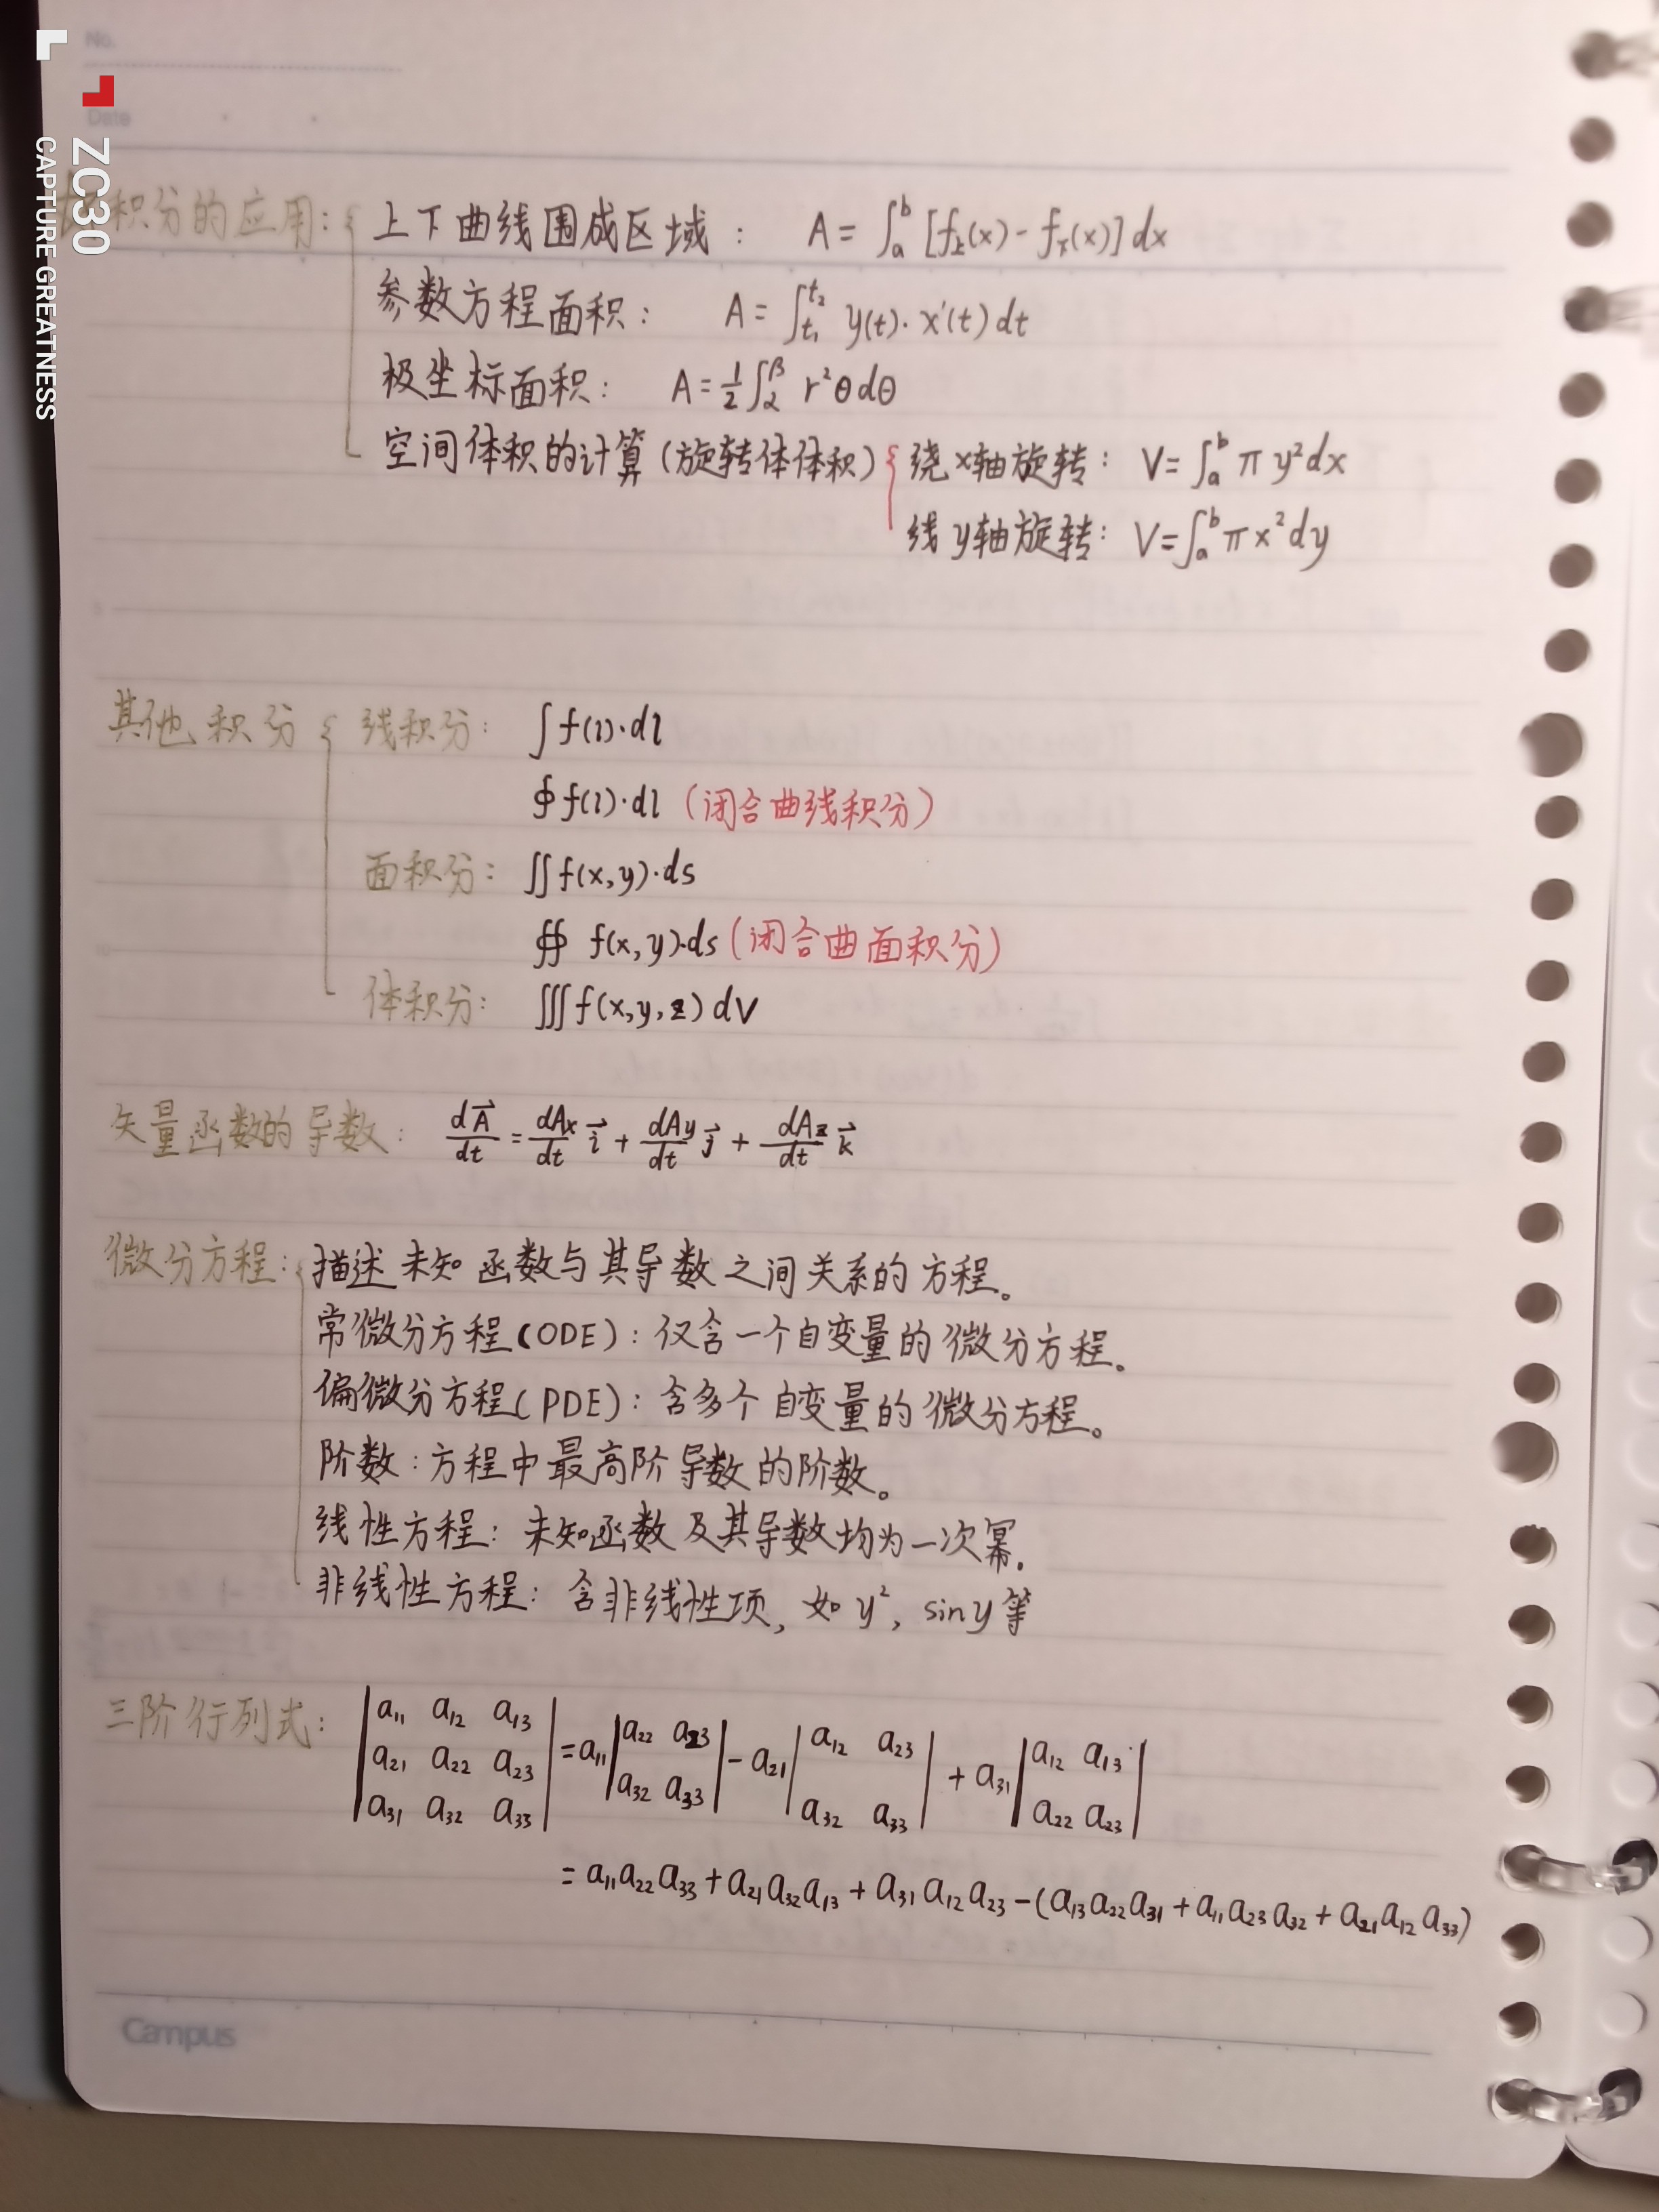 No.
Date
ZC30
CAPTURE GREATNESS
积分的应用：
上下曲线围成区域： A = ∫ₐᵇ [f上(x) - f下(x)] dx
参数方程面积： A = ∫_{t₁}^{t₂} y(t)·x'(t) dt
极坐标面积： A = ½∫_α^β r²θdθ
空间体积的计算（旋转体体积） 绕x轴旋转： V = ∫ₐᵇ π y²dx
线y轴旋转： V = ∫ₐᵇ π x² dy
其他积分 线积分： ∫ f(l)·dl
∮ f(l)·dl （闭合曲线积分）
面积分： ∬ f(x,y)·ds
∯ f(x,y)·ds（闭合曲面积分）
体积分： ∭ f(x,y,z) dV
矢量函数的导数： dA⃗/dt = dAx/dt i⃗ + dAy/dt j⃗ + dAz/dt k⃗
微分方程： 描述未知函数与其导数之间关系的方程。
常微分方程(ODE)：仅含一个自变量的微分方程。
偏微分方程(PDE)：含多个自变量的微分方程。
阶数：方程中最高阶导数的阶数。
线性方程：未知函数及其导数均为一次幂.
非线性方程：含非线性项，如 y²，siny等
三阶行列式： |a₁₁ a₁₂ a₁₃; a₂₁ a₂₂ a₂₃; a₃₁ a₃₂ a₃₃| = a₁₁|a₂₂ a₂₃; a₃₂ a₃₃| - a₂₁|a₁₂ a₂₃; a₃₂ a₃₃| + a₃₁|a₁₂ a₁₃; a₂₂ a₂₃|
= a₁₁a₂₂a₃₃ + a₂₁a₃₂a₁₃ + a₃₁a₁₂a₂₃ - (a₁₃a₂₂a₃₁ + a₁₁a₂₃a₃₂ + a₂₁a₁₂a₃₃)
Campus